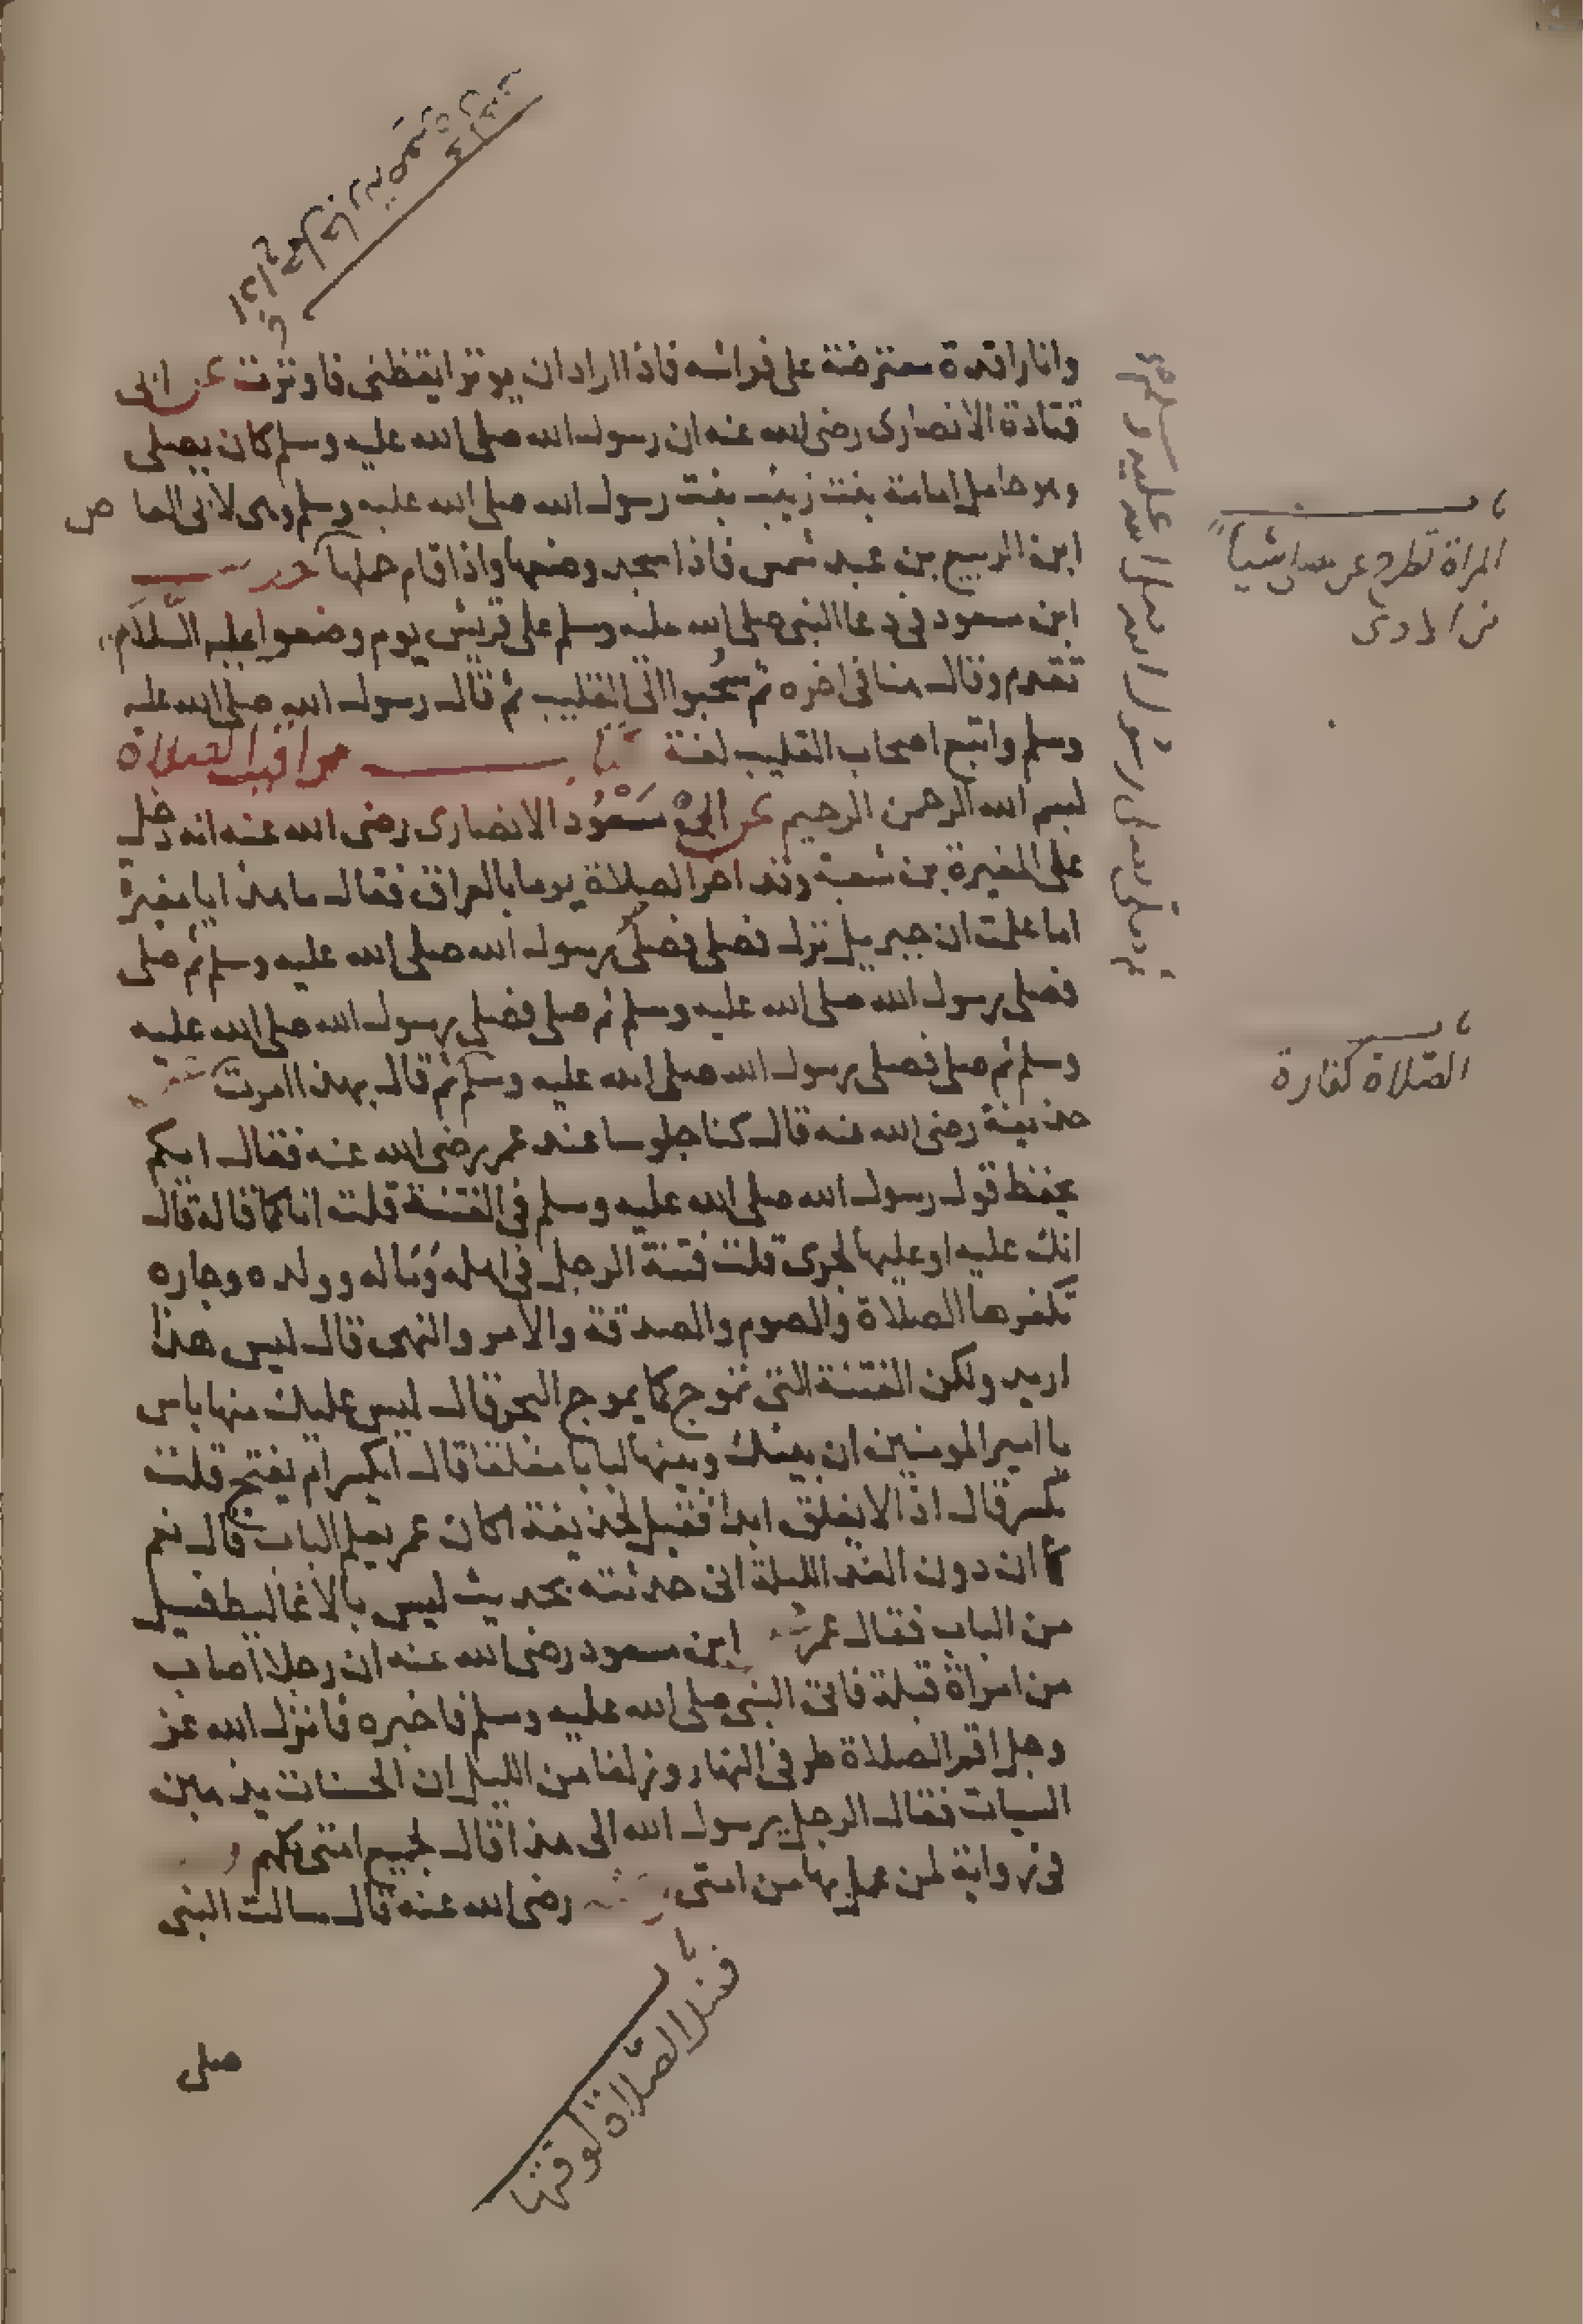 اذا حمل جارية صغيرة
وانا راقدة معترضة على فراشه فاذا اراد ان يوتر ايقظنى فاوترت عن ابى
قتادة الانصارى رضى الله عنه ان رسول الله صلى الله عليه وسلم كان يصلى
وهو حامل امامة بنت زينب بنت رسول الله صلى الله عليه وسلم وهى لابى العا ص
ابن الربيع بن عبد شمس فاذا سجد وضعها واذا قام حملها حديث
ابن مسعود فى دعا النبى صلى الله عليه وسلم على قريش يوم وضعوا عليه السلا
تقدم وقال هنا فى اخره ثم سحبوا الى القليب ثم قال رسول الله صلى الله عليه
وسلم واتبع اصحاب القليب لعنة مواقيت الصلاة
بسم الله الرحمن الرحيم عن ابى مسعود الانصارى رضى الله عنه انه دخل
على المغيرة بن شعبة وقد اخر الصلاة يوما بالعراق فقال ما هذا يا مغيرة
اما علمت ان جبريل نزل فصلى فصلى رسول الله صلى الله عليه وسلم ثم صلى
فصلى رسول الله صلى الله عليه وسلم ثم صلى فصلى رسول الله صلى الله عليه
وسلم ثم صلى فصلى رسول الله صلى الله عليه وسلم ثم قال بهذا امرت
حذيفة رضى الله عنه قال كنا جلوسا عند عمر رضى الله عنه فقال ايكم
يحفظ قول رسول الله صلى الله عليه وسلم فى الفتنة قلت انا كما قاله قال
انك عليه او عليها لجرى قلت فتنة الرجل فى اهله وماله وولده وجاره
تكفرها الصلاة والصوم والصدقة والامر والنهى قال ليس هذا
اريد ولكن الفتنة التى تموج كما يموج البحر قال ليس عليك منها باس
يا امير المومنين ان بينك وبينها لبابا مغلقا قال ايكسر ام يفتح قلت
يكسر قال اذا لا يغلق ابدا فقيل لحذيفة اكان عمر يعلم الباب قال نعم
كما ان دون الغد الليلة انى حدثته بحديث ليس بالاغاليط فقيل
من الباب فقال عمر ابن مسعود رضى الله عنه ان رجلا اصاب
من امراة قبلة فاتى النبى صلى الله عليه وسلم فاخبره فانزل الله عز
وجل اقم الصلاة طرفى النهار وزلفا من الليل ان الحسنات يذهبن
السيات فقال الرجل يرسول الله الى هذا قال لجميع امتى كلهم و
فى رواية لمن عمل بها من امتى رضى الله عنه قال سالت النبى
صلى
المراة تطرح عن المصلى شيا
من الاذى
الصلاة كفارة
فضل الصلاة لوقتها